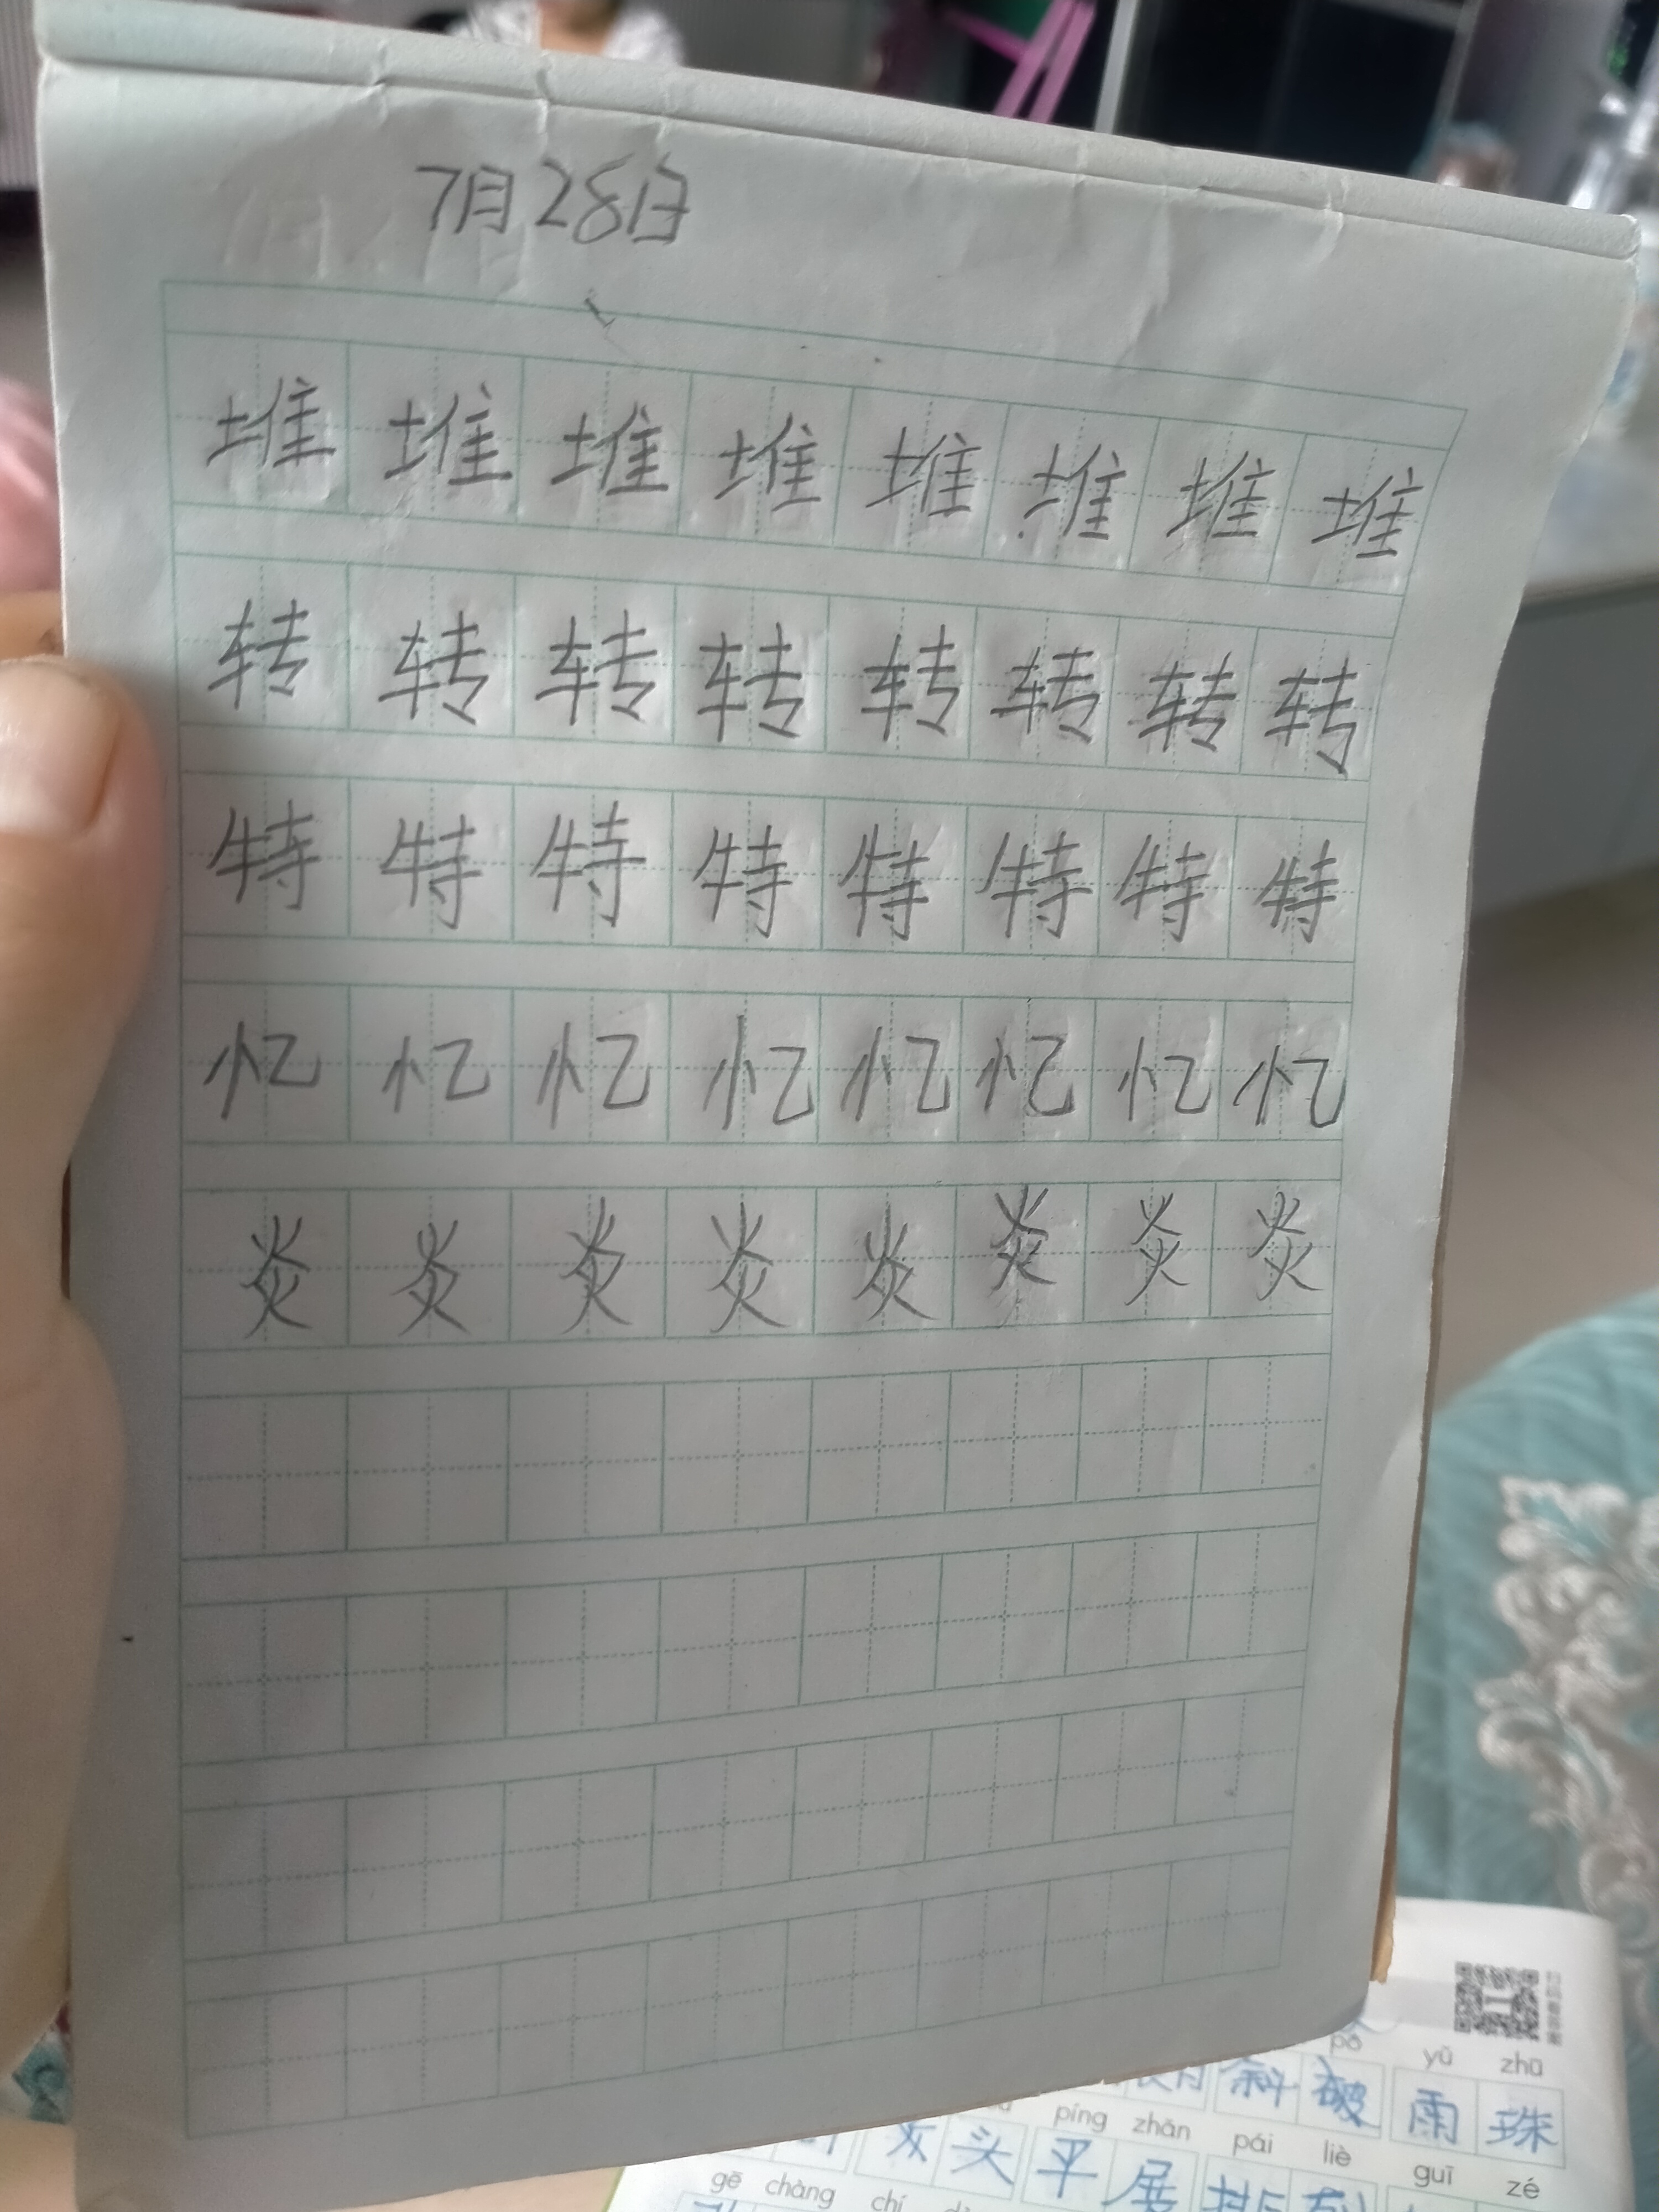 7月28日
堆堆堆堆堆堆堆堆
转转转转转转转转
特特特特特特特特
忆忆忆忆忆忆忆忆
炎炎炎炎炎炎炎炎
pō yǔ zhū
斜 破 雨 珠
píng zhǎn pái liè guī zé
头 平 展 排 列
gē chàng chí